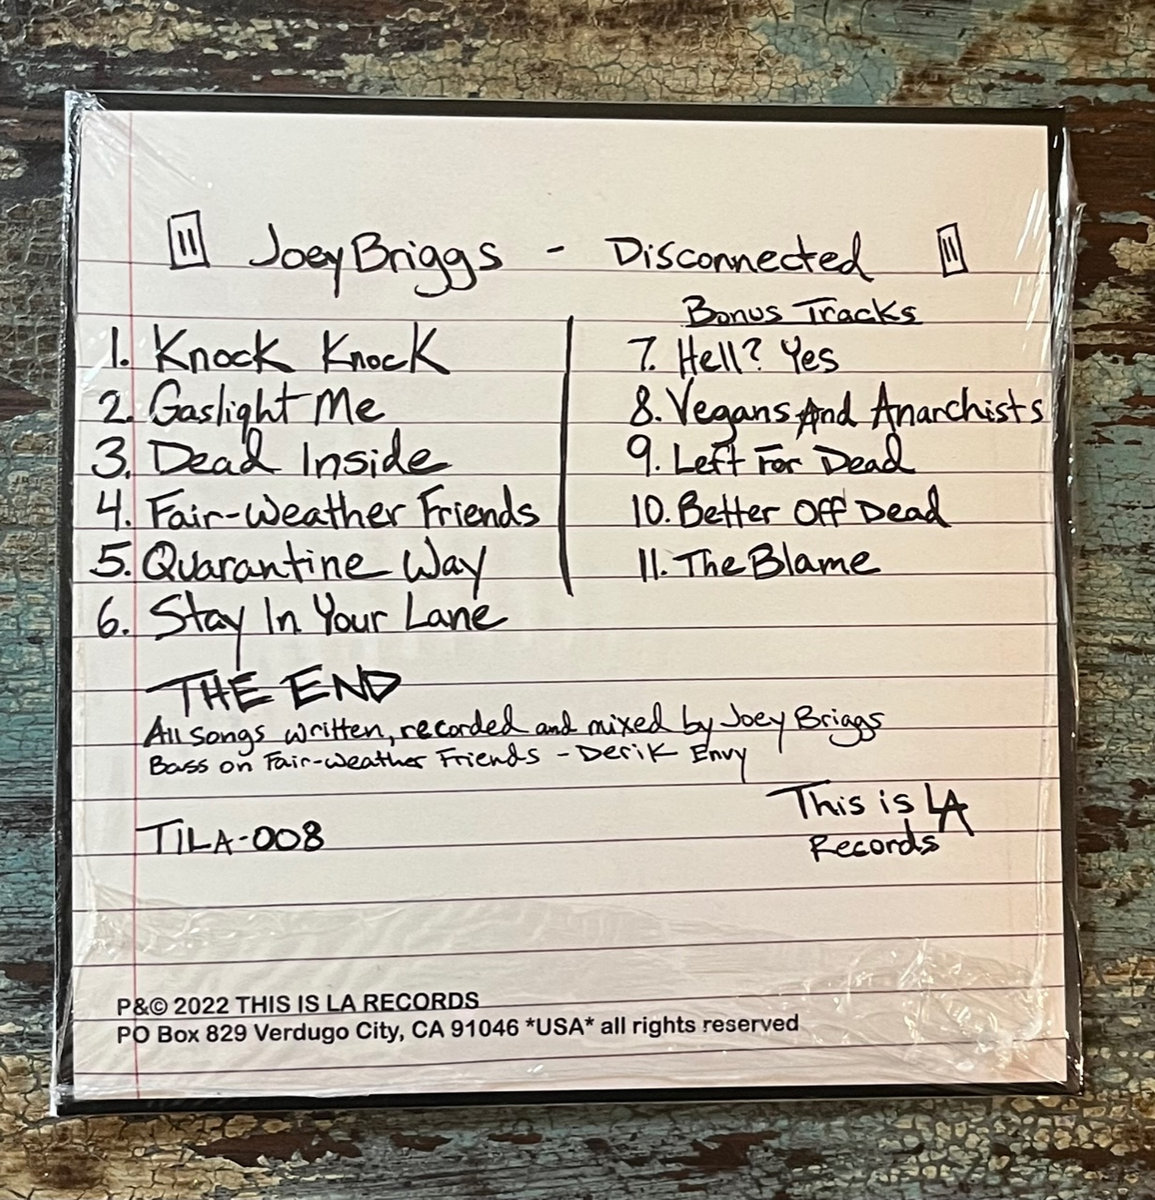 Joey Briggs - Disconnected
1. Knock Knock
2. Gaslight Me
3. Dead Inside
4. Fair-Weather Friends
5. Quarantine Way
6. Stay In Your Lane
Bonus Tracks
7. Hell? Yes
8. Vegans And Anarchists
9. Left For Dead
10. Better Off Dead
11. The Blame
THE END
All songs written, recorded and mixed by Joey Briggs
Bass on Fair-Weather Friends - Derik Envy
This is LA
Records
TILA-008
P&© 2022 THIS IS LA RECORDS
PO Box 829 Verdugo City, CA 91046 *USA* all rights reserved